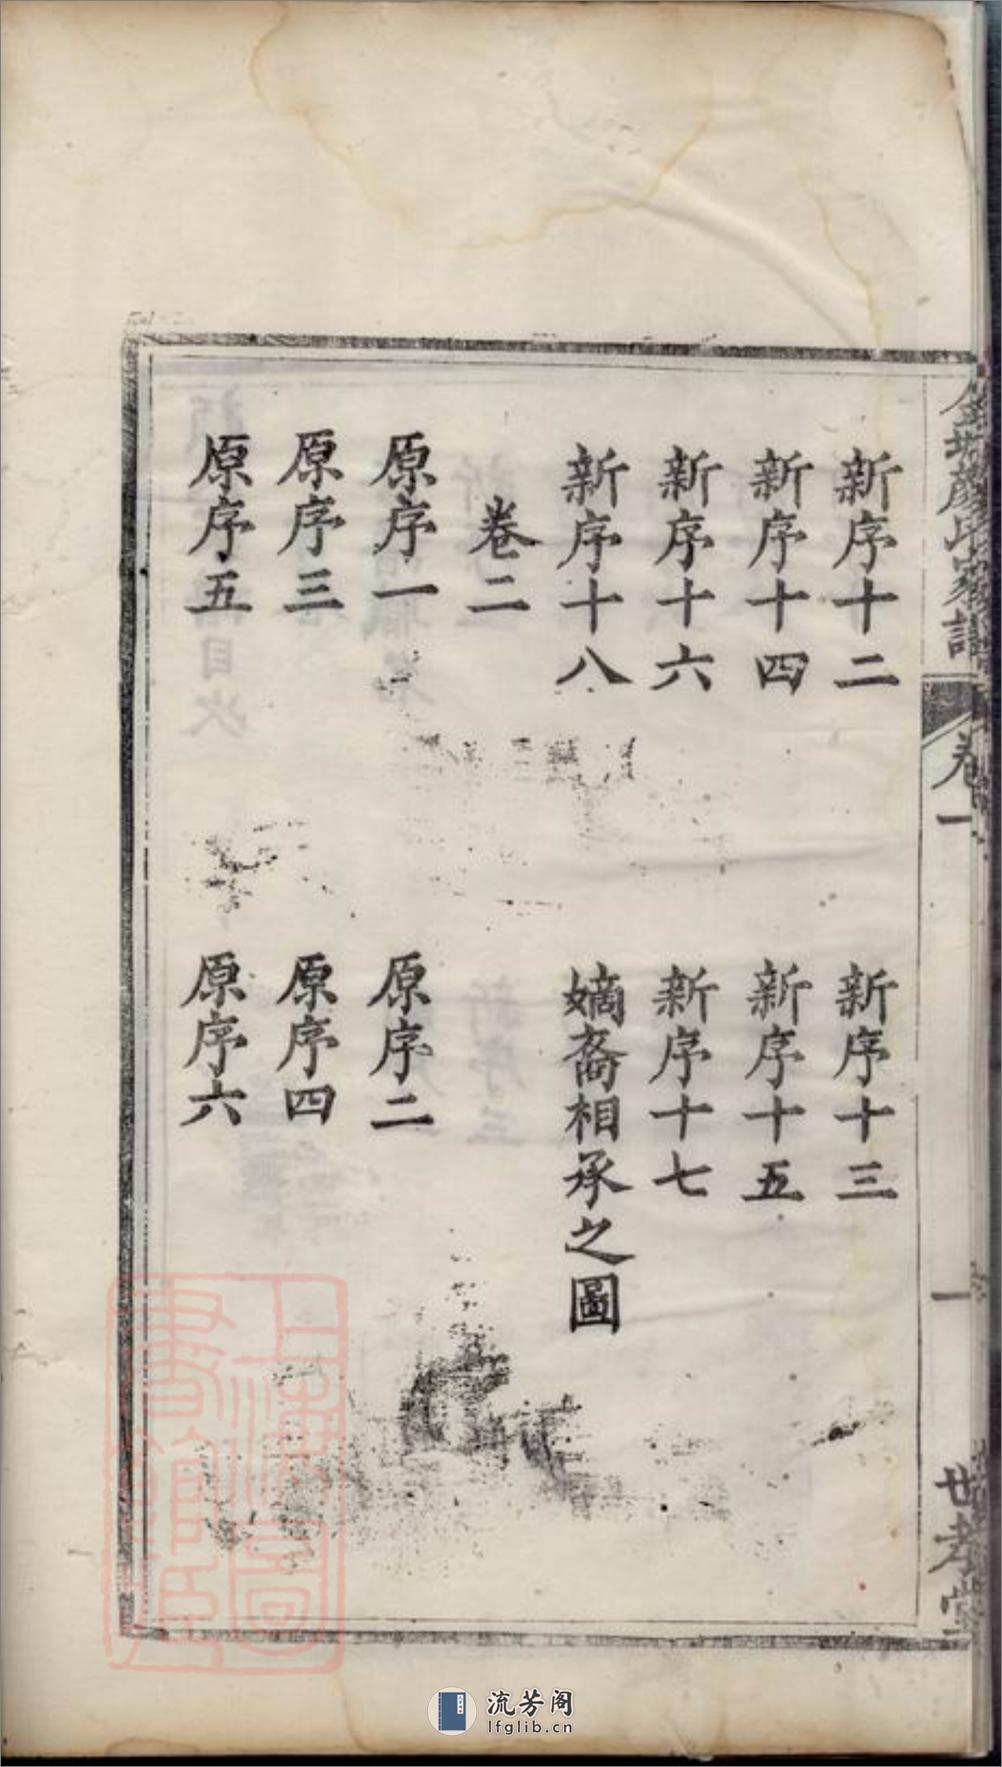 新序十二
新序十三
新序十四
新序十五
新序十六
新序十七
新序十八
嫡裔相承之圖
卷二
原序一
原序二
原序三
原序四
原序五
原序六
氏家譜
卷一
一
世孝堂
上海圖
書館藏
流芳阁
lfglib.cn